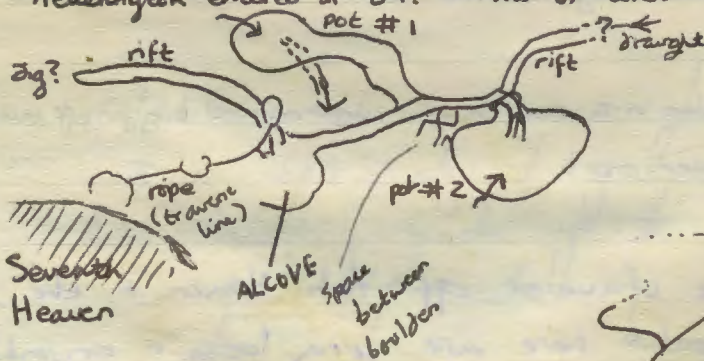 pot # 1
dig?
rift
?
draught
rift
rope
(traverse
line)
pot # 2
Seventh
Heaven
ALCOVE
Space
between
boulders